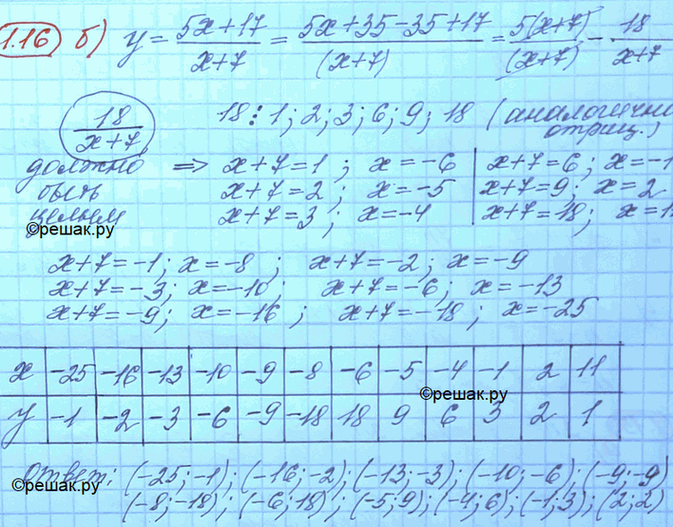 1.16 б) y = (5x+17)/(x+7) = (5x+35-35+17)/(x+7) = 5(x+7)/(x+7) - 18/(x+7)
18/(x+7) 18 ⋮ 1; 2; 3; 6; 9; 18 (аналогично
отриц.)
должно ⇒ x+7=1; x=-6 | x+7=6; x=-1
быть x+7=2; x=-5 | x+7=9; x=2
целым x+7=3; x=-4 | x+7=18; x=1
©решак.ру
x+7=-1; x=-8; x+7=-2; x=-9
x+7=-3; x=-10; x+7=-6; x=-13
x+7=-9; x=-16; x+7=-18; x=-25
x -25 -16 -13 -10 -9 -8 -6 -5 -4 -1 2 11
©решак.ру
y -1 -2 -3 -6 -9 -18 18 9 6 3 2 1
Ответ: (-25; -1); (-16; -2); (-13; -3); (-10; -6); (-9; -9)
©решак.ру (-8; -18); (-6; 18); (-5; 9); (-4; 6); (-1; 3); (2; 2)